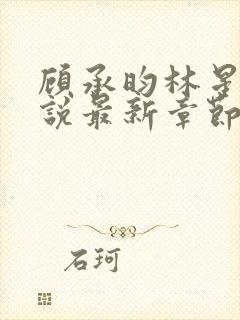 顾承昀林星
說最新章節
石珂